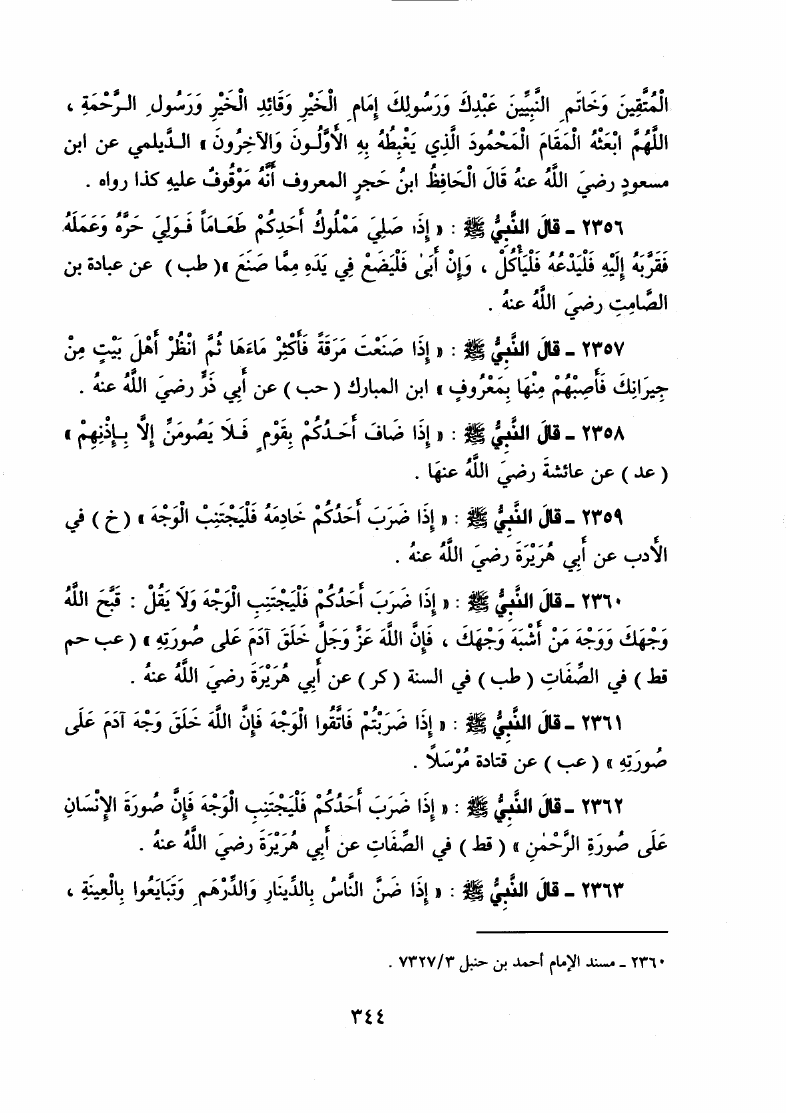 الْمُتَّقِينَ وَخَاتَمِ النَّبِيِّينَ عَبْدِكَ وَرَسُولِكَ إِمَامِ الْخَيْرِ وَقَائِدِ الْخَيْرِ وَرَسُولِ الرَّحْمَةِ ،
اللَّهُمَّ ابْعَثْهُ الْمَقَامَ الْمَحْمُودَ الَّذِي يَغْبِطُهُ بِهِ الأَوَّلُونَ وَالآخِرُونَ » الديلمي عن ابن
مسعود رضيَ اللَّهُ عنهُ قَالَ الْحَافِظُ ابنُ حَجر المعروف أَنَّهُ مَوْقُوف عليهِ كذا رواه .
٢٣٥٦ ـ قالَ النَّبِيُّ ﷺ : « إِذَا صَلِيَ مَمْلُوكُ أَحَدِكُمْ طَعَاماً فَوَلِيَ حَرَّهُ وَعَمَلَهُ
فَقَرَّبَهُ إِلَيْهِ فَلْيَدْعُهُ فَلْيَأْكُلْ ، وَإِنْ أَبَىٰ فَلْيَضَعْ فِي يَدِهِ مِمَّا صَنَعَ »( طب ) عن عبادة بن
الصَّامِتِ رضيَ اللَّهُ عنهُ .
٢٣٥٧ ـ قالَ النَّبِيُّ ﷺ : « إِذَا صَنَعْتَ مَرَقَةً فَأَكْثِرْ مَاءَهَا ثُمَّ انْظُرْ أَهْلَ بَيْتٍ مِنْ
جِيرَانِكَ فَأَصِبْهُمْ مِنْهَا بِمَعْرُوفٍ » ابن المبارك ( حب ) عن أَبي ذَرٍّ رضيَ اللَّهُ عنهُ .
٢٣٥٨ ـ قالَ النَّبِيُّ ﷺ : « إِذَا ضَافَ أَحَدُكُمْ بِقَوْمٍ فَلَا يَصُومَنَّ إِلَّا بِإِذْنِهِمْ »
( عد ) عن عائشةَ رضيَ اللَّهُ عنهَا .
٢٣٥٩ ـ قالَ النَّبِيُّ ﷺ : « إِذَا ضَرَبَ أَحَدُكُمْ خَادِمَهُ فَلْيَجْتَنِبْ الْوَجْهَ » ( خ ) في
الأَدب عن أَبي هُرَيْرَةَ رضيَ اللَّهُ عنهُ .
٢٣٦٠ ـ قالَ النَّبِيُّ ﷺ : « إِذَا ضَرَبَ أَحَدُكُمْ فَلْيَجْتَنِبِ الْوَجْهَ وَلَا يَقُلْ : قَبَّحَ اللَّهُ
وَجْهَكَ وَوَجْهَ مَنْ أَشْبَهَ وَجْهَكَ ، فَإِنَّ اللَّهَ عَزَّ وَجَلَّ خَلَقَ آدَمَ عَلى صُورَتِهِ » ( عب حم
قط ) في الصِّفَاتِ ( طب ) في السنة ( كر ) عن أَبي هُرَيْرَةَ رضيَ اللَّهُ عنهُ .
٢٣٦١ ـ قالَ النَّبِيُّ ﷺ : « إِذَا ضَرَبْتُمْ فَاتَّقُوا الْوَجْهَ فَإِنَّ اللَّهَ خَلَقَ وَجْهَ آدَمَ عَلَى
صُورَتِهِ » ( عب ) عن قتادة مُرْسَلًا .
٢٣٦٢ ـ قالَ النَّبِيُّ ﷺ : « إِذَا ضَرَبَ أَحَدُكُمْ فَلْيَجْتَنِبِ الْوَجْهَ فَإِنَّ صُورَةَ الإِنْسَانِ
عَلَى صُورَةِ الرَّحْمٰنِ » ( قط ) في الصِّفَاتِ عن أَبي هُرَيْرَةَ رضيَ اللَّهُ عنهُ .
٢٣٦٣ ـ قالَ النَّبِيُّ ﷺ : « إِذَا ضَنَّ النَّاسُ بِالدِّينَارِ وَالدِّرْهَمِ وَتَبَايَعُوا بِالْعِينَةِ ،
٢٣٦٠ ـ مسند الإمام أحمد بن حنبل ٧٣٢٧/٣ .
٣٤٤